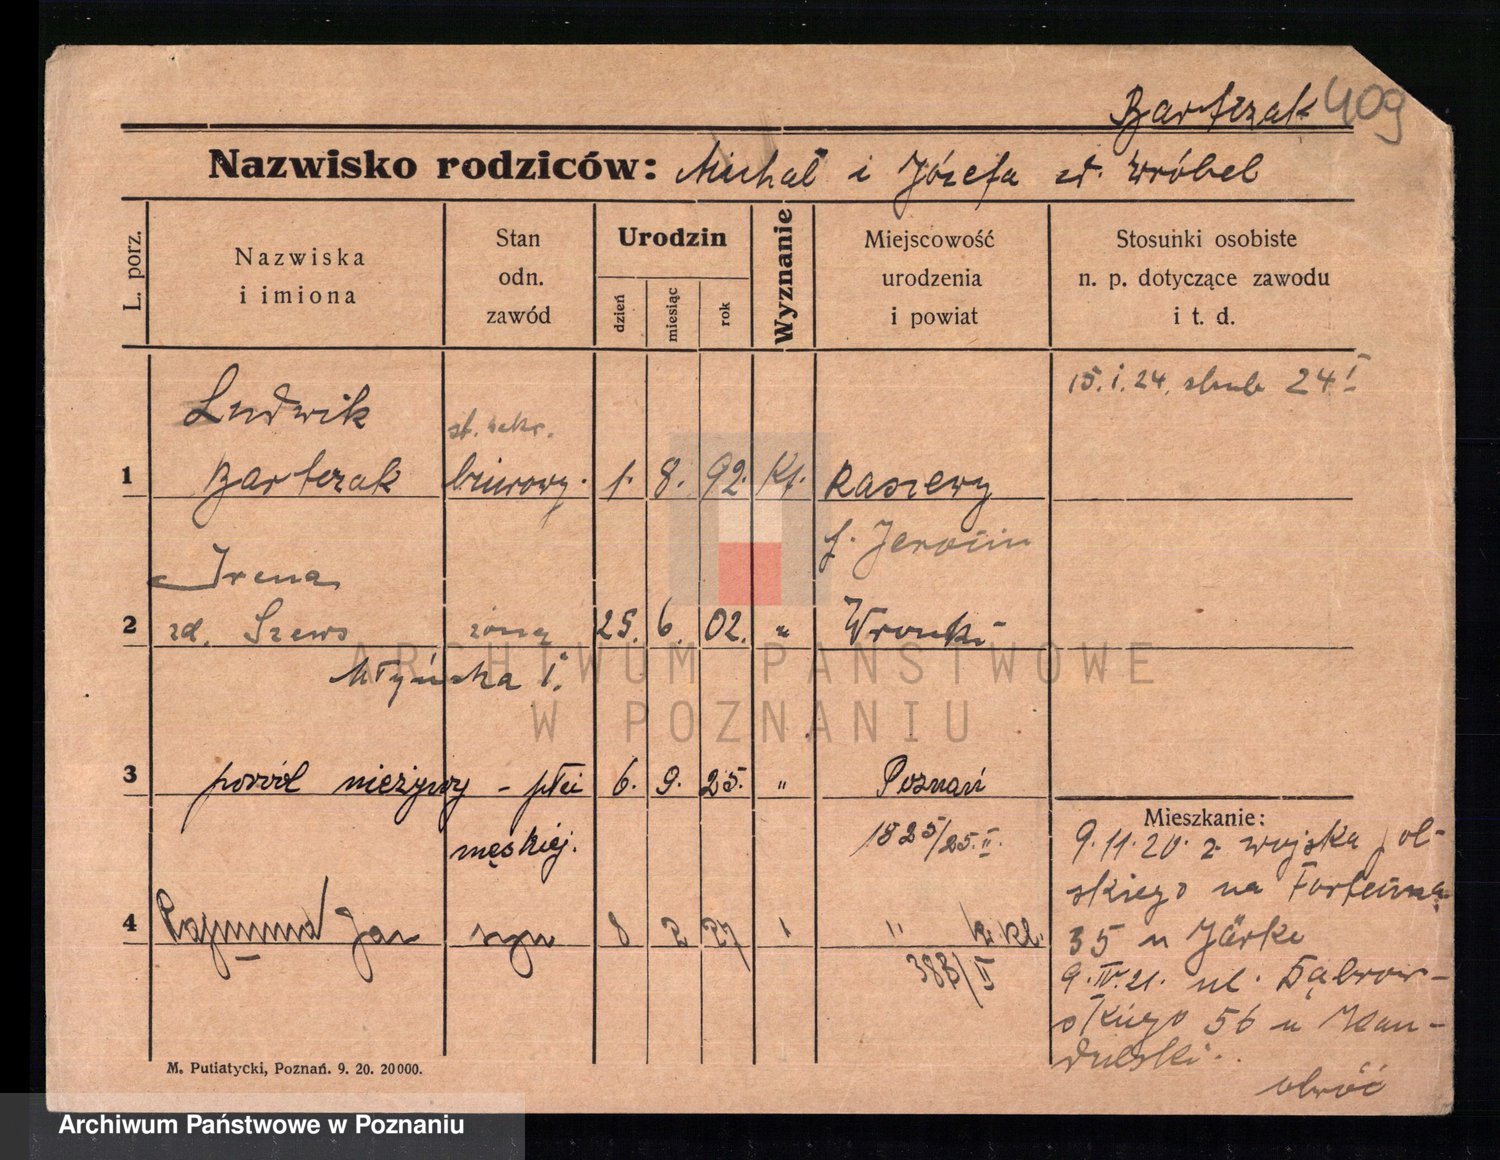 Bartczak 409
Nazwisko rodziców: Michał i Józefa zd. Wróbel
L. porz.
Nazwiska
i imiona
Stan
odn.
zawód
Urodzin
dzień
miesiąc
rok
Wyznanie
Miejscowość
urodzenia
i powiat
Stosunki osobiste
n. p. dotyczące zawodu
i t. d.
15.1.24. ślub 24 I
Ludwik
st. sekr.
1 Bartczak biurowy. 1. 8. 92. Kt. Raszewy
p. Jarocin
Irena
2 zd. Szews żona 25. 6. 02. " Wronki
Młyńska
3 poród nieżywy - płci 6. 9. 25. " Poznań
męskiej.
1825/25. II.
4 Rajmund Jan syn 8 2 27 "
383/II
Mieszkanie:
9.11.20. z wojska pol-
skiego na Forteczna
35 u Järke
9. IV. 21. ul. Dąbrow-
skiego 56 u Kan-
dulski.
obróć
M. Putiatycki, Poznań. 9. 20. 20000.
ARCHIWUM PAŃSTWOWE
W POZNANIU
Archiwum Państwowe w Poznaniu